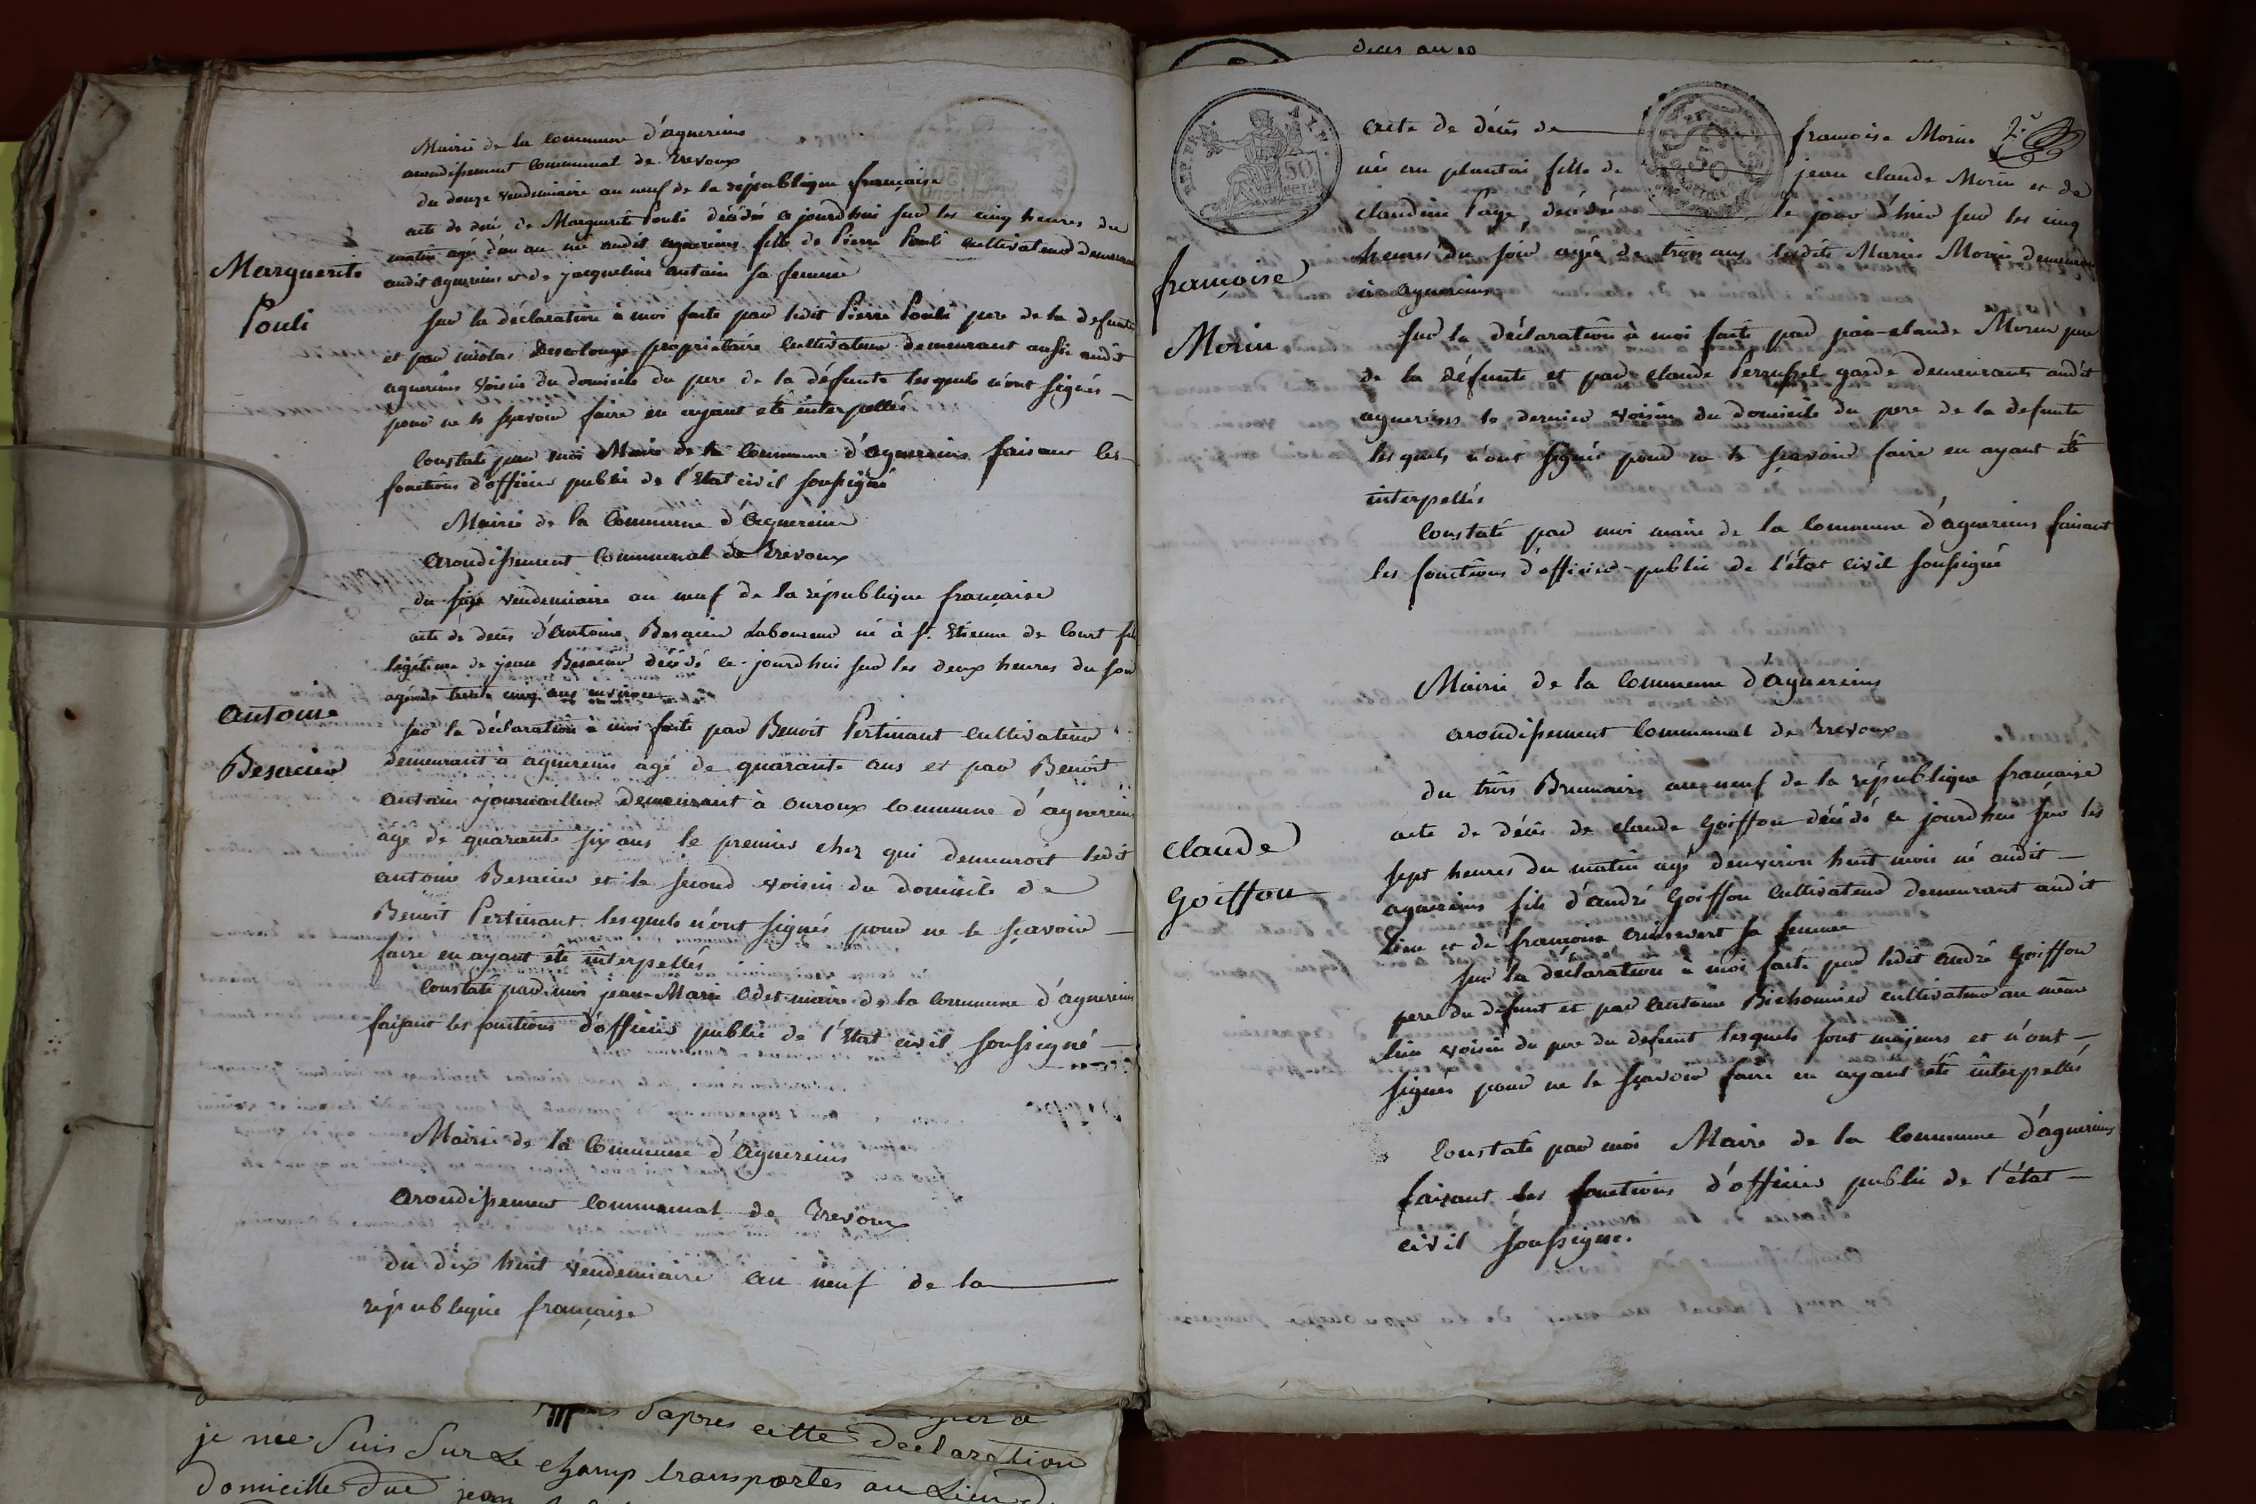 Mairie de la commune d'aguereins
arondissement communal de Trevoux
du douze vendemiaire an neuf de la république française
acte de déces de Marguerite Pouli décédée ce jourd'hui sur les cinq heures du
matin agée d'un an née audit aguereins fille de Pierre Pouli cultivateur demeurant
audit aguereins et de jacqueline antain sa femme
Marguerite
Pouli
sur la déclaration à moi faite par ledit Pierre Pouli pere de la defunte
et par nicolas Descolonge propriétaire cultivateur demeurant aussi audit
aguereins voisin du domicile du pere de la défunte lesquels n'ont signés
pour ne le sçavoir faire en ayant été interpellés
Constaté par moi Maire de la Commune d'aguereins faisant les
fonctions d'officier public de l'Etat civil soussigné
Mairie de la Commune d'Aguereins
arondissement Communal de Trevoux
du seize vendemiaire an neuf de la république française
acte de décès d'antoine Besacier Laboureur né à St. Etienne de Court fils
légitime de jean Besacier décédé ce-jourd'hui sur les deux heures du soir
agé de trente cinq ans environ
antoine
Besacier
sur la déclaration à moi faite par Benoit Pertinant cultivateur
demeurant à aguereins agé de quarante ans et par Benoit
antain journaillier demeurant à ouroux commune d'aguereins
agé de quarante six ans le premier chez qui demeuroit ledit
antoine Besacier et le second voisin du domicile de
Benoit Pertinant lesquels n'ont signés pour ne le sçavoir
faire en ayant été interpellés
Constaté par moi jean-Marie Odet maire de la commune d'aguereins
faisant les fonctions d'officier public de l'Etat civil soussigné
Mairie de la Commune d'Aguereins
arondissement Communal de Trevoux
du dix huit vendemiaire an neuf de la
république française
je me suis sur Le champ transportés au Lieu
d'apres cette declaration
domicille due jean
déces an 10
REP. FRA.
50
cent
acte de décès de francoise Morin
née au plantai fille de jean claude Morin et de
claudine Page, décédée le jour d'hier sur les cinq
heures du soir agée de trois ans lesdits Mariés Morin demeurant
à aguereins
françoise
Morin
sur la déclaration à moi faite par jean-claude Morin pere
de la défunte et par claude Perrussel garde demeurants audit
aguereins le dernier voisin du domicile du pere de la defunte
lesquels n'ont signés pour ne le sçavoir faire en ayant été
interpellés
Constaté par moi maire de la Commune d'aguereins faisant
les fonctions d'officier public de l'état civil soussigné
Mairie de la Commune d'Aguereins
arondissement Communal de Trevoux
du trois Brumaire an neuf de la république française
acte de décès de claude Goiffon décédé ce jourd'hui sur les
sept heures du matin agé denviron huit mois né audit
aguereins fils d'andré Goiffon Cultivateur demeurant audit
lieu et de francoise sa femme
claude
Goiffon
sur la déclaration à moi faite par ledit andré Goiffon
pere du défunt et par antoine Bichonnier cultivateur au même
lieu voisin du pere du defunt lesquels sont majeurs et n'ont
signés pour ne le sçavoir faire en ayant été interpellés
Constaté par moi Maire de la Commune d'aguereins
faisant les fonctions d'officier public de l'état
civil soussigné.